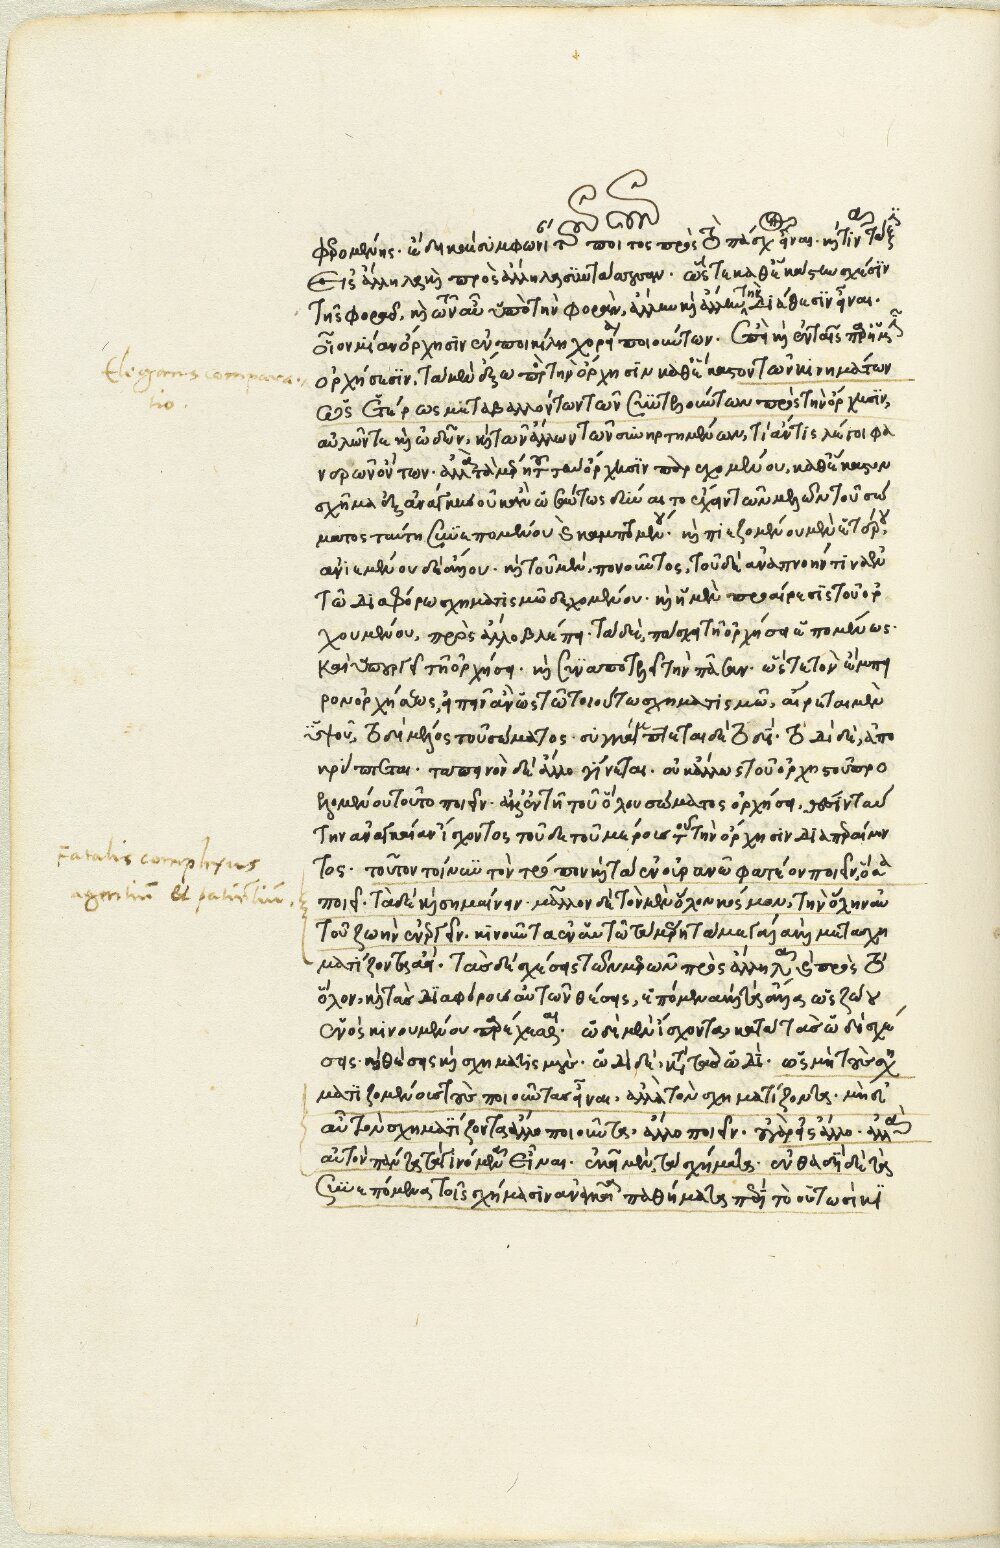 φερομένης· ἔτι δὲ καὶ συμφωνία τοῦ ποιοῦντος πρὸς τὸ πάσχειν εἶναι· καὶ τιν τάξιν
εἰς ἄλληλα καὶ πρὸς ἄλληλα συντάττουσαν· ὥστε καθ' ἑκάστην σχέσιν
τῆς φορᾶς, καὶ τῶν αὖ ὑπὸ τὴν φορὰν, ἄλλην καὶ ἄλλην τὴν διάθεσιν εἶναι·
οἷον μίαν ὄρχησιν ἐν ποικίλῃ χορείᾳ ποιούντων· ἐπεὶ καὶ ἐν ταῖς παρ' ἡμῖν
ὀρχήσεσιν, τὰ μὲν ἔξω πρὸς τὴν ὄρχησιν καθ' ἕκαστον τῶν κινημάτων
ὡς ἑτέρως μεταβαλλόντων τῶν συντελούντων πρὸς τὴν ὄρχησιν,
αὐλῶν τε καὶ ᾠδῶν, καὶ τῶν ἄλλων τῶν συνηρτημένων, τί ἄν τις λέγοι φα
νερῶν ὄντων· ἀλλὰ τὰ μέρη τοῦ τὴν ὄρχησιν παρεχομένου, καθ' ἕκαστον
σχῆμα ἐξ ἀνάγκης οὐκ ἂν ὡσαύτως δύναιτο ἔχειν τῶν μελῶν τοῦ σώ
ματος ταύτῃ συνεπομένου καὶ καμπτομένου· καὶ πιεζομένου μὲν ἑτέρου,
ἀνιεμένου δὲ ἄλλου· καὶ τοῦ μὲν, πονοῦντος, τοῦ δὲ ἀναπνοήν τινα ἐν
τῷ διαφόρῳ σχηματισμῷ δεχομένου· καὶ ἡ μὲν προαίρεσις τοῦ ὀρ
χουμένου, πρὸς ἄλλο βλέπει· τὰ δὲ, πάσχει τῇ ὀρχήσει ἑπομένως·
καὶ ὑπουργεῖ τῇ ὀρχήσει· καὶ συναποτελεῖ τὴν πᾶσαν· ὥστε τὸν ἔμπει
ρον ὀρχήσεως, εἰπεῖν ἂν ὡς τῷ τοιούτῳ σχηματισμῷ, αἴρεται μὲν
ὑψοῦ, τοδὶ μέλος τοῦ σώματος· συγκάμπτεται δὲ τοδί· τοδὶ δὲ, ἀπο
κρύπτεται· ταπεινὸν δὲ ἄλλο γίνεται· οὐκ ἄλλως τοῦ ὀρχηστοῦ προ
ελομένου τοῦτο ποιεῖν· ἀλλ' ἐν τῇ τοῦ ὅλου σώματος ὀρχήσει, θέσιν ταύ
την ἀναγκαίαν ἴσχοντος τοῦδε τοῦ μέρους τοῦ τὴν ὄρχησιν διαπεραίνον
τος· τοῦτον τοίνυν τὸν τρόπον καὶ τὰ ἐν οὐρανῷ φατέον ποιεῖν, ὅσα
ποιεῖ· τὰ δὲ καὶ σημαίνειν· μᾶλλον δὲ τὸν μὲν ὅλον κόσμον, τὴν ὅλην αὐ
τοῦ ζωὴν ἐνεργεῖν· κινοῦντα ἐν αὑτῷ τὰ μέρη τὰ μεγάλα καὶ μετασχη
ματίζοντα ἀεί· τὰς δὲ σχέσεις τῶν μερῶν πρὸς ἄλληλα καὶ πρὸς τὸ
ὅλον, καὶ τὰς διαφόρους αὐτῶν θέσεις, ἑπόμενα καὶ τὰ ἄλλα ὡς ζῴου
ἑνὸς κινουμένου παρέχεσθαι· ὡδὶ μὲν ἴσχοντα, κατὰ τὰς ὡδὶ σχέ
σεις· καὶ θέσεις καὶ σχηματισμούς· ὡδὶ δὲ, κατὰ τὰς ὡδί· ὡς μὴ τοὺς σχη
ματιζομένους τοὺς ποιοῦντας εἶναι, ἀλλὰ τὸν σχηματίζοντα· μὴ δ'
αὖ τὸν σχηματίζοντα ἄλλο ποιοῦντα, ἄλλο ποιεῖν· οὐ γὰρ εἰς ἄλλο· ἀλλὰ
αὐτὸν πάντα τὰ γινόμενα εἶναι· ἐκεῖ μὲν, τὰ σχήματα· ἐνθαδὶ δὲ τὰ
συνεπόμενα τοῖς σχήμασιν ἀναγκαῖα παθήματα περὶ τὸ οὑτωσὶ κι
Elegans compara
tio.
Fatalis complexus
agentiū et patientiū.